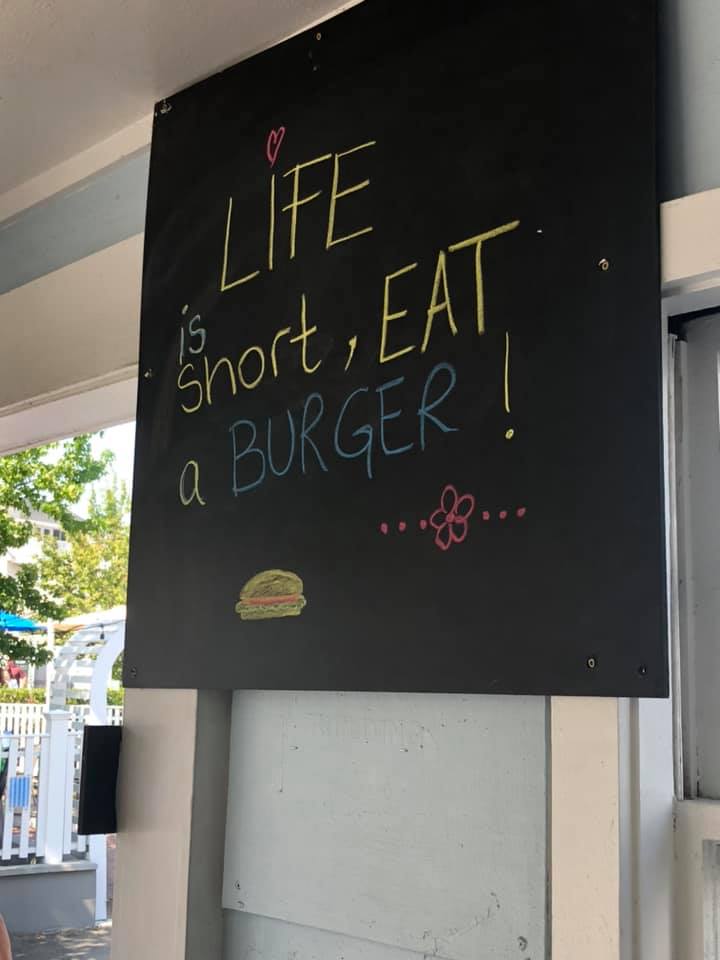 LIFE
is
Short, EAT
a BURGER!